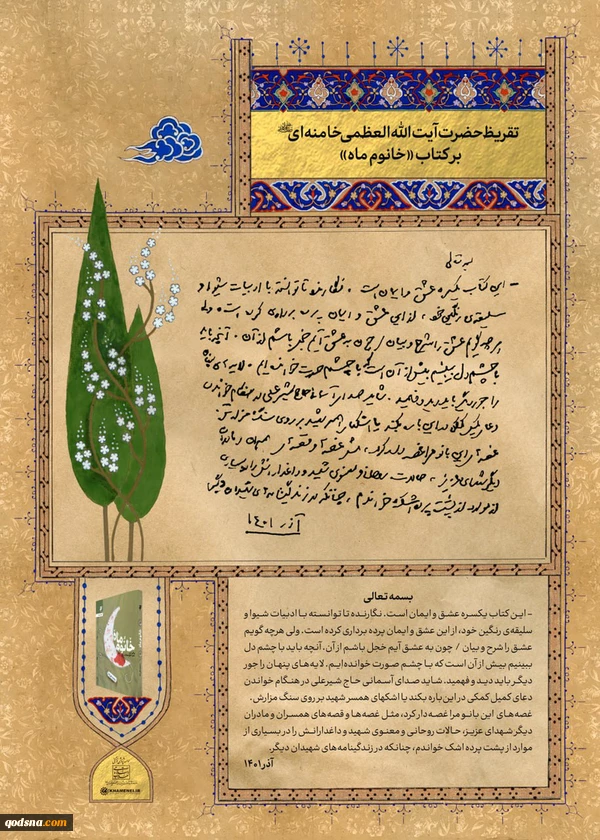 تقریظ حضرت آیت الله العظمی خامنه‌ای
بر کتاب «خانوم ماه»
بسمه تعالی
- این کتاب یکسره عشق و ایمان است، نگارنده تا توانسته با ادبیات شیوا و
سلیقه‌ی رنگین خود، از این عشق و ایمان پرده برداری کرده است. ولی
هر چه گویم عشق را شرح و بیان / چون به عشق آیم خجل باشم از آن. آنچه باید
با چشم دل ببینیم بیش از آن است که با چشم صورت خوانده ایم. لایه های پنهان
را جور دیگر باید دید و فهمید. شاید صدای آسمانی حاج شیرعلی در هنگام خواندن
دعای کمیل کمکی در این باره بکند یا اشکهای همسر شهید بر روی سنگ مزارش.
غصه های این بانو مرا غصه دار کرد، مثل غصه ها و قصه های همسران و مادران
دیگر شهدای عزیز، حالات روحانی و معنوی شهید و داغدارانش را در بسیاری
از موارد از پشت پرده اشک خواندم، چنانکه در زندگینامه های شهیدان دیگر.
آذر ۱۴۰۱
بسمه تعالی
- این کتاب یکسره عشق و ایمان است. نگارنده تا توانسته با ادبیات شیوا و
سلیقه‌ی رنگین خود، از این عشق و ایمان پرده برداری کرده است. ولی هرچه گویم
عشق را شرح و بیان / چون به عشق آیم خجل باشم از آن. آنچه باید با چشم دل
ببینیم بیش از آن است که با چشم صورت خوانده‌ایم. لایه‌های پنهان را جور
دیگر باید دید و فهمید. شاید صدای آسمانی حاج شیرعلی در هنگام خواندن
دعای کمیل کمکی در این باره بکند یا اشکهای همسر شهید بر روی سنگ مزارش.
غصه‌های این بانو مرا غصه دار کرد، مثل غصه‌ها و قصه‌های همسران و مادران
دیگر شهدای عزیز، حالات روحانی و معنوی شهید و داغدارانش را در بسیاری از
موارد از پشت پرده اشک خواندم، چنانکه در زندگینامه‌های شهیدان دیگر.
آذر ۱۴۰۱
خانوم ماه
@KHAMENEI.IR
qodsna.com